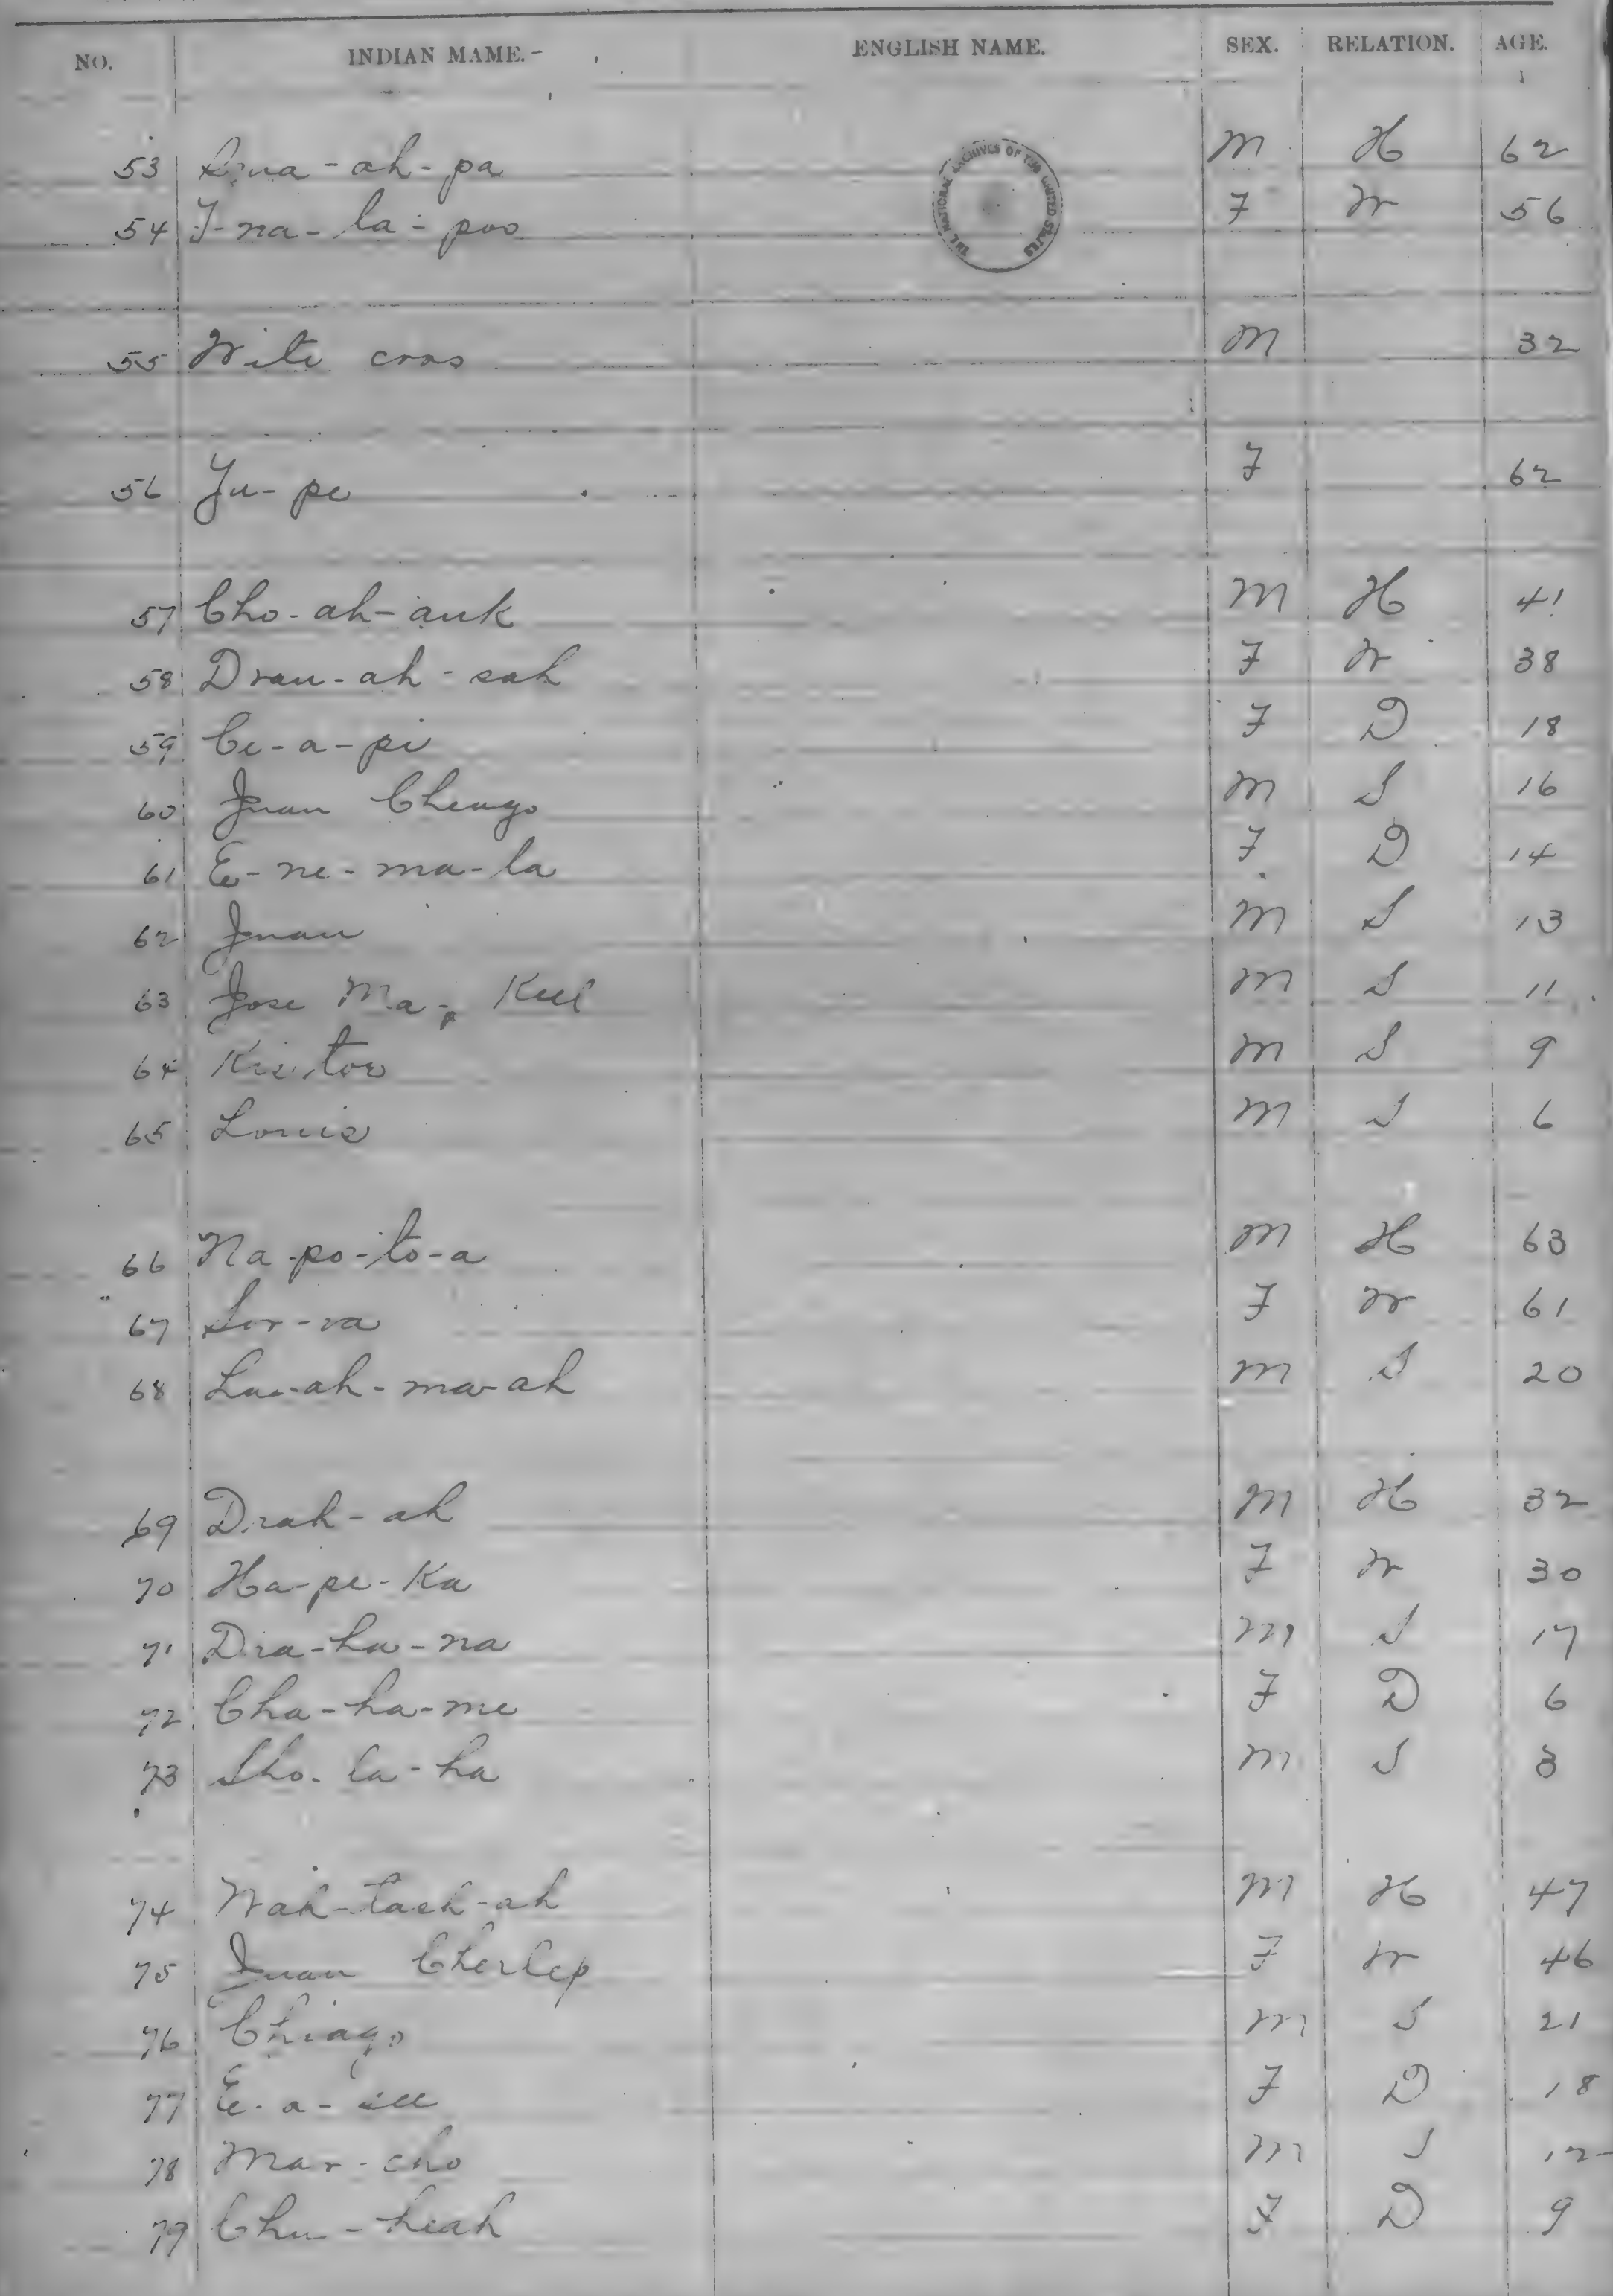 NO. INDIAN MAME. ENGLISH NAME. SEX. RELATION. AGE.
THE NATIONAL ARCHIVES OF THE UNITED STATES
53 M H 62
54 I-na-la-poo F W 56
55 Wite M 32
56 Ju-pe F 62
57 Cho-ah-auk M H 41
58 Drau-ah-sah F W 38
59 Ce-a-pi F D 18
60 Juan Cheago M S 16
61 E-ne-ma-la F D 14
62 Juan M S 13
63 Jose Ma- Keel M S 11
64 M S 9
65 Louis M S 6
66 Na-po-to-a M H 63
67 Sor-va F W 61
68 Lu-ah-ma-ah M S 20
69 Drah-ah M H 32
70 Ha-pe-Ka F W 30
71 Dra-ha-na M S 17
72 Cha-ha-me F D 6
73 Sho-la-ha M S 3
74 Wah-tach-ah M H 47
75 Juan F W 46
76 Chiago M S 21
77 F D 18
78 Mar-cho M S 12
79 Chu-heah F D 9